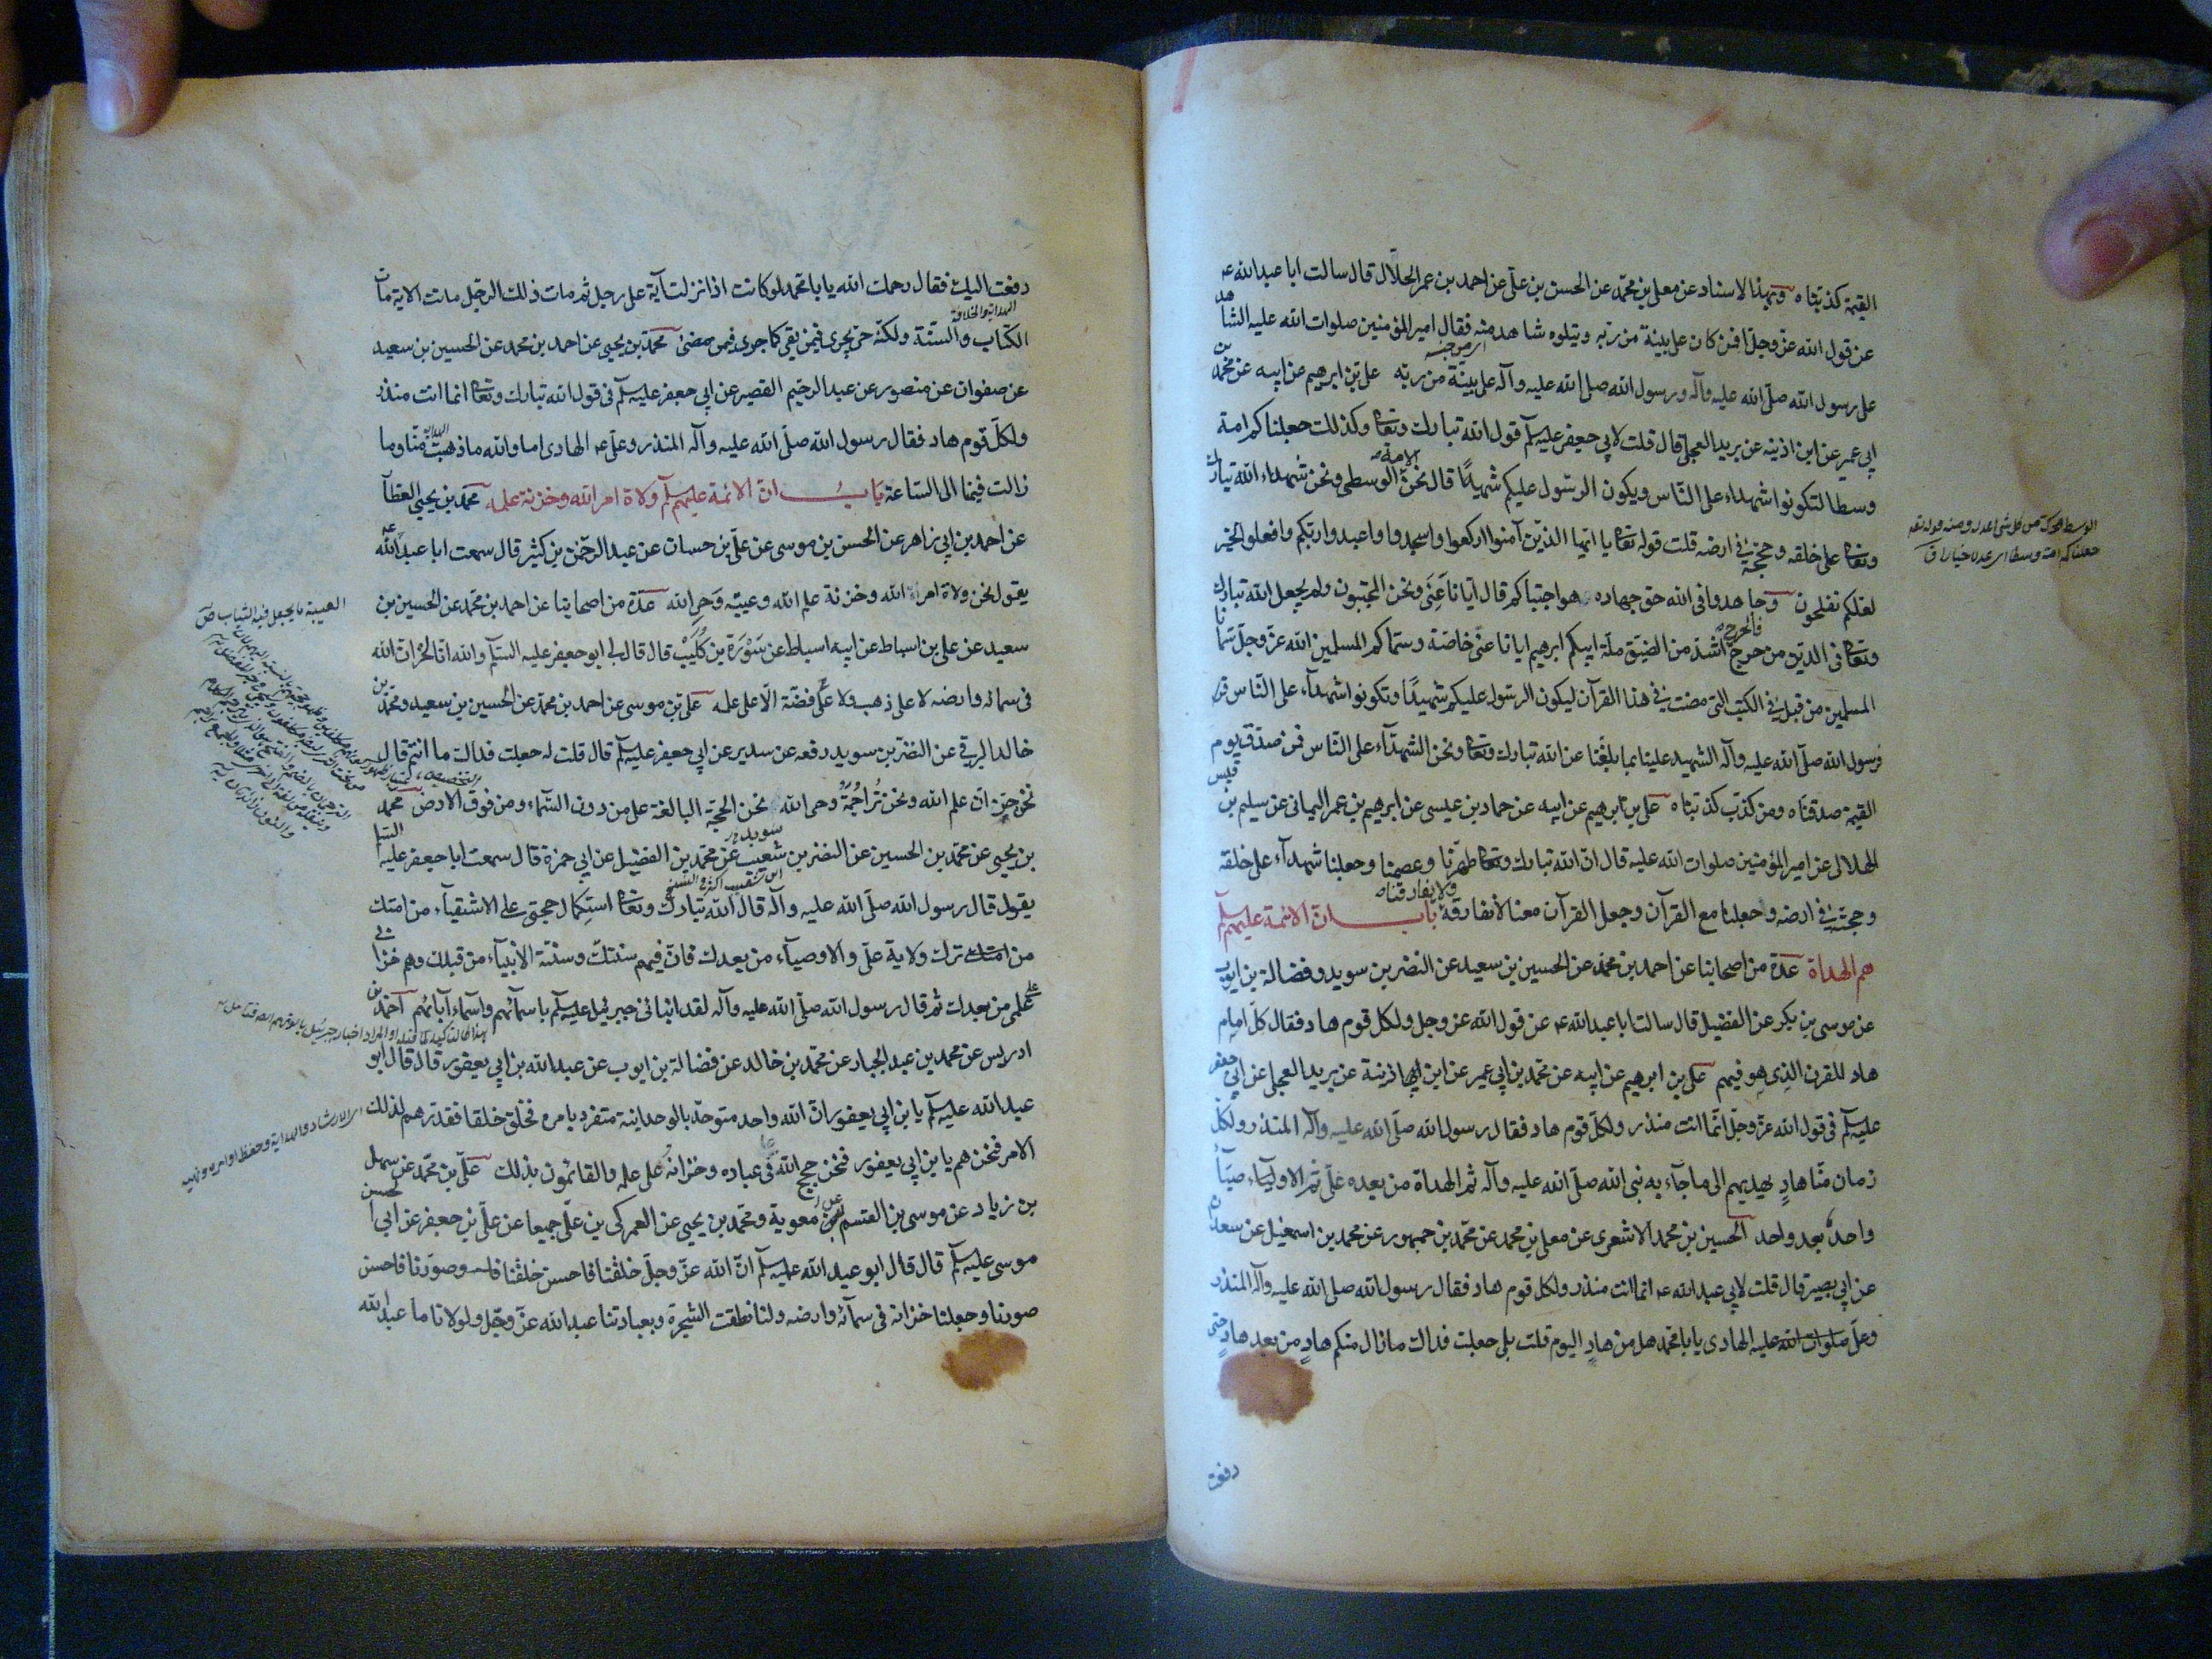 القيمة كذبناه وبهذا الاسناد عن معلى بن محمد عن الحسن بن علي عن احمد بن عمر الحلال قال سالت ابا عبد الله ع
عن قول الله عز وجل افمن كان على بينة من ربه ويتلوه شاهد منه فقال امير المؤمنين صلوات الله عليه الشاهد
على رسول الله صلى الله عليه وآله ورسول الله صلى الله عليه وآله على بينة من ربه على بن ابرهيم عن ابيه عن محمد بن
ابي عمير عن ابن اذينه عن بريد العجلي قال قلت لابي جعفر عليه السلم قول الله تبارك وتعا وكذلك جعلناكم امة
وسطا لتكونوا شهداء على الناس ويكون الرسول عليكم شهيدًا قال نحن الامة الوسطى ونحن شهداء الله تبارك
وتعا على خلقه وحججه في ارضه قلت قوله تعا يا ايها الذين آمنوا اركعوا واسجدوا واعبدوا ربكم وافعلوا الخير
لعلكم تفلحون وجاهدوا في الله حق جهاده هو اجتباكم قال ايانا عَنَى ونحن المجتبون ولم يجعل الله تبارك
وتعا في الدين من حرج فالحرج اشد من الضيق ملة ابيكم ابرهيم ايانا عنى خاصة وسماكم المسلمين الله عز وجل سمانا
المسلمين من قبل في الكتب التي مضت وفي هذا القرآن ليكون الرسول عليكم شهيدًا وتكونوا شهدآء على الناس
فرسول الله صلى الله عليه وآله الشهيد علينا بما بلغنا عن الله تبارك وتعا ونحن الشهدآء على الناس فمن صدق يوم
القيمة صدقناه ومن كذب كذبناه على بن ابرهيم عن ابيه عن حماد بن عيسى عن ابرهيم بن عمر اليماني عن سليم بن قيس
الهلالي عن امير المؤمنين صلوات الله عليه قال ان الله تبارك وتعا طهرنا وعصمنا وجعلنا شهدآء على خلقه
وحجته في ارضه وجعلنا مع القرآن وجعل القرآن معنا لا نفارقه ولا يفارقنا باب ان الائمة عليهم السلم
هم الهداة عدة من اصحابنا عن احمد بن محمد عن الحسين بن سعيد عن النضر بن سويد وفضالة بن ايوب
عن موسى بن بكر عن الفضيل قال سالت ابا عبد الله ع عن قول الله عز وجل ولكل قوم هاد فقال كل امام
هاد للقرن الذى هو فيهم على بن ابرهيم عن ابيه عن محمد بن ابي عمير عن ابن اذينة عن بريد العجلي عن ابي جعفر
عليه السلم في قول الله عز وجل انما انت منذر ولكل قوم هاد فقال رسول الله صلى الله عليه وآله المنذر ولكل
زمان منا هادٍ يهديهم الى ما جآء به نبي الله صلى الله عليه وآله ثم الهداة من بعده على ثم الاوصيآء
واحد بعد واحد الحسين بن محمد الاشعرى عن معلى بن محمد عن محمد بن جمهور عن محمد بن اسمعيل عن سعدان
عن ابي بصير قال قلت لابي عبد الله ع انما انت منذر ولكل قوم هاد فقال رسول الله صلى الله عليه وآله المنذر
وعلى صلوات الله عليه الهادى يا با محمد هل من هادٍ اليوم قلت بلى جعلت فداك ما زال منكم هادٍ من بعد هادٍ حتى
دفعت
الوسط محركة من كل شي اعدله ومنه قوله تعا
جعلناكم امة وسطا اى عدلا خيارا ق
دفعت اليك فقال رحمك الله يا با محمد لو كانت اذا نزلت آية على رجل ثم مات ذلك الرجل ماتت الاية مات
الكتاب والسنة ولكنه حي يجرى فيمن بقي كما جرى فيمن مضى محمد بن يحيى عن احمد بن محمد عن الحسين بن سعيد
عن صفوان عن منصور عن عبد الرحيم القصير عن ابي جعفر عليه السلم في قول الله تبارك وتعا انما انت منذر
ولكل قوم هاد فقال رسول الله صلى الله عليه وآله المنذر وعلى ع الهادى اما والله ما ذهبت منا وما
زالت فينا الى الساعة باب ان الائمة عليهم السلم ولاة امر الله وخزنة علمه محمد بن يحيى العطار
عن احمد بن ابي زاهر عن الحسن بن موسى عن على بن حسان عن عبد الرحمن بن كثير قال سمعت ابا عبد الله ع
يقول نحن ولاة امر الله وخزنة علم الله وعيبة وحى الله عدة من اصحابنا عن احمد بن محمد عن الحسين بن
سعيد عن على بن اسباط عن ابيه اسباط عن سَوْرَة بن كُلَيْب قال قال لي ابو جعفر عليه السلم والله انا لخزان الله
في سمائه وارضه لا على ذهب ولا على فضة الا على علمه على بن موسى عن احمد بن محمد عن الحسين بن سعيد ومحمد بن
خالد البرقي عن النضر بن سويد رفعه عن سدير عن ابي جعفر عليه السلم قال قلت له جعلت فداك ما انتم قال
نحن خزان علم الله ونحن تراجمة وحى الله نحن الحجة البالغة على من دون السماء ومن فوق الارض محمد
بن يحيى عن محمد بن الحسين عن النضر بن شعيب عن محمد بن الفضيل عن ابي حمزة قال سمعت ابا جعفر عليه السلم
يقول قال رسول الله صلى الله عليه وآله قال الله تبارك وتعا استكمال حجتي على الاشقيآء من امتك
من ترك ولاية على والاوصيآء من بعدك فان فيهم سنتك وسنة الانبيآء من قبلك وهم خزاني
على علمى من بعدك ثم قال رسول الله صلى الله عليه وآله لقد انبانى جبرئيل عليه السلم باسمآئهم واسماء آبائهم احمد بن
ادريس عن محمد بن عبد الجبار عن محمد بن خالد عن فضالة بن ايوب عن عبد الله بن ابي يعفور قال قال ابو
عبد الله عليه السلم يا بن ابي يعفور ان الله واحد متوحد بالوحدانية متفرد بامره فخلق خلقا فقدرهم لذلك
الامر فنحن هم يا بن ابي يعفور فنحن حجج الله في عباده وخزانه على علمه والقائمون بذلك على بن محمد عن سهل
بن زياد عن موسى بن القسم بن معوية ومحمد بن يحيى عن العمركى بن على جميعا عن على بن جعفر عن ابي الحسن
موسى عليه السلم قال قال ابو عبد الله عليه السلم ان الله عز وجل خلقنا فاحسن خلقنا وصورنا فاحسن
صورنا وجعلنا خزانه في سمآئه وارضه ولنا نطقت الشجرة وبعبادتنا عبد الله عز وجل ولولانا ما عبد الله
العيبة ما يجعل فيه الثياب ص
اى الارشاد والهداية وحفظ اوامره ونهيه